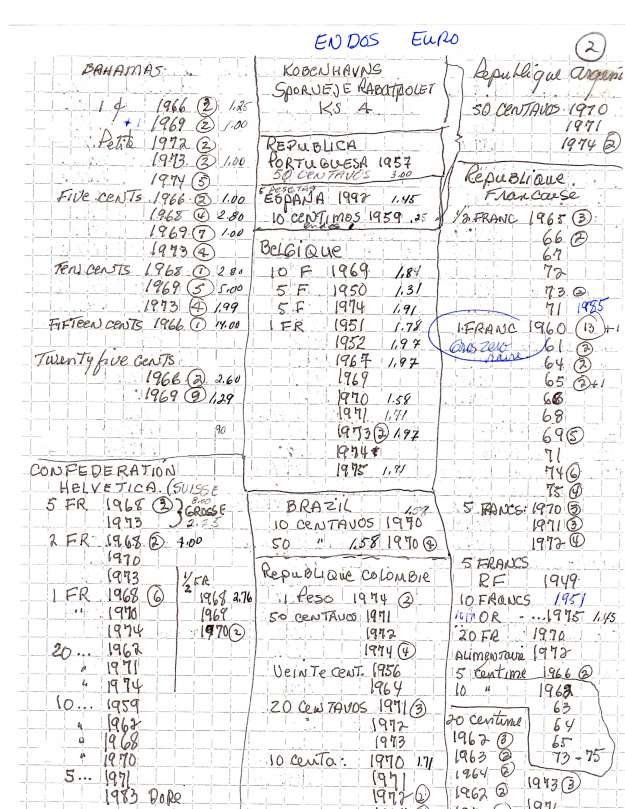 EN DOS EURO
2
BAHAMAS
1 ¢ 1966 (2) 1.25
+1 1969 (2) 1.00
Petite 1972 (2)
1973 (3) 1.00
1974 (5)
FIVE CENTS 1966 (2) 1.00
1968 (4) 2.80
1969 (7) 1.00
1973 (4)
TEN CENTS 1968 (1) 2.80
1969 (5) 5.00
1973 (4) 1.99
FIFTEEN CENTS 1966 (1) 14.00
Twenty five cents
1966 (2) 2.60
1969 (9) 1,29
90
CONFEDERATION
HELVETICA (SUISSE
5 FR 1968 (3) 8.00 GROSSE
1973 2.25
2 FR 1968 (2) 4.00
1970
1973
1 FR 1968 (6)
" 1970
1974
1/2 FR
1968 2.76
1969
1970 (2)
20... 1962
" 1971
" 1974
10... 1959
" 1962
" 1968
" 1970
5... 1971
1983 DORE
KOBENHAVNS
SPORVEJE RABATPOLET
KS A
REPUBLICA
PORTUGUESA 1957
50 CENTAVOS 3.00
5 PESETAS
ESPANA 1992 1.45
10 CENTIMOS 1959 .25
BELGIQUE
10 F 1969 1.84
5 F 1950 1.31
5 F 1974 1.91
1 FR 1951 1.78
1952 1.97
1967 1,97
1969
1970 1.58
1971 1.71
1973 (2) 1.97
1974
1975 1.71
BRAZIL 1.58
10 CENTAVOS 1970
50 " 1.58 1970 (4)
REPUBLIQUE COLOMBIE
1 Peso 1974 (2)
50 CENTAVOS 1971
1972
1974 (4)
VEINTE CENT. 1956
1964
20 CENTAVOS 1971 (3)
" 1972
1973
10 centa: 1970 1.71
1971
1972 (2)
République Argenti
50 CENTAVOS 1970
1971
1974 (2)
République
Francaise
1/2 FRANC 1965 (3)
66 (2)
67
72
73 (2)
71 1985
1 FRANC 1960 (13) +1
Gros zero 61 (2)
64 (2)
65 (2) +1
66
68
69 (5)
71
74 (6)
75 (4)
5 FRANCS: 1970 (3)
1971 (3)
1972 (4)
5 FRANCS
RF 1949
10 FRANCS 1951
OR - ...1975 1.45
20 FR 1970
1972
5 centime 1966 (2)
10 " 1962
63
64
65
73 - 75
20 centime
1962 (3)
1963 (2)
1964 (2)
1962 (2)
1973 (3)
1971